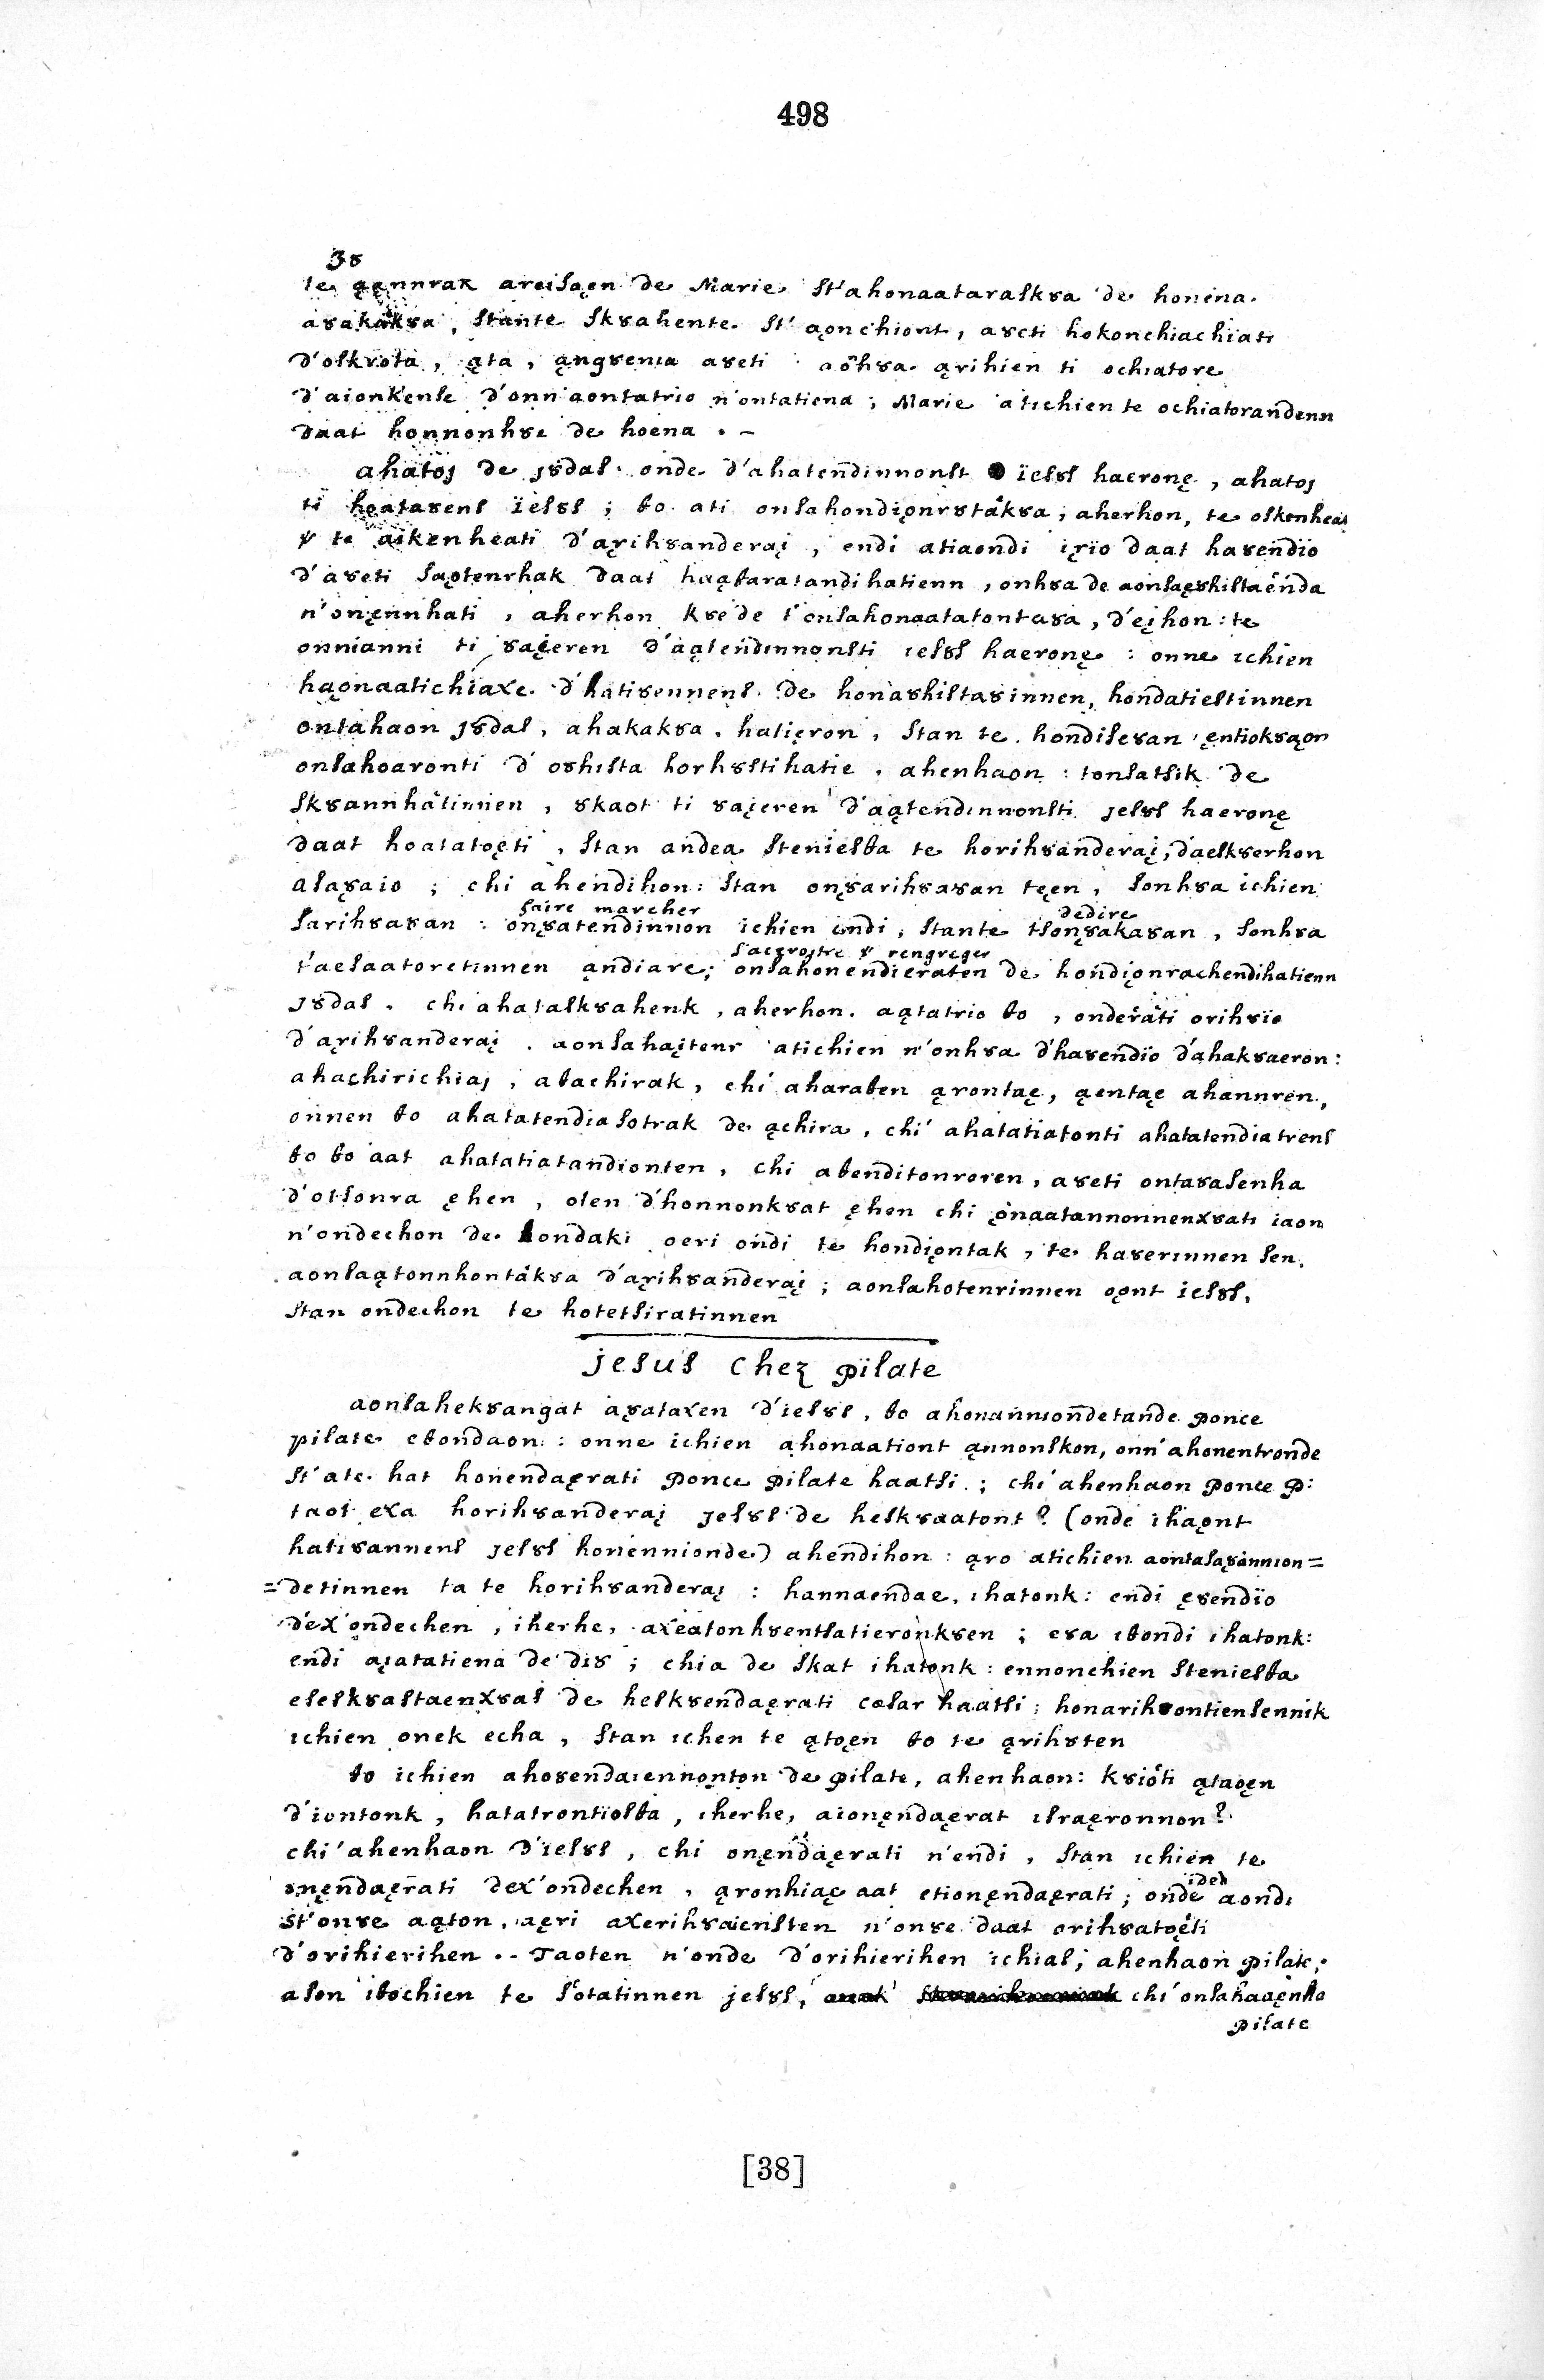 498
38
te ąęnnrak areisąen de Marie st'ahonaataraskȣa de honena.
aȣakakȣa, stante skȣahente. st' ąonchiont, aȣeti hokonchiachiati
d'oskȣota, ąta, ąngȣenia aȣeti aôhȣa. ąrihien ti ochiatore
d'aionkense d'onn'aontatrio n'ontatiena; Marie atichien te ochiatorandenn
daat honnonhȣe de hoena . –
ahatoȷ de ȷȣdas. onde d'ahatendinnonst ïesȣs haeronę, ahatoȷ
ti hoataȣens ïesȣs; ɵo ati onsahondiǫnrȣtakȣa; aherhon, te oskenheas
te aikenheati d'ąrihȣanderaį, endi atiaondi įȣïo daat haȣendïo
d'aȣeti sąotenrhak daat haąɵaratandihatienn, onhȣa de aonsaęȣhistaenda
n'onęnnhati, aherhon kȣe de t'onsahonaatatontaȣa, d'eįhon: te
onnianni ti ȣaįeren d'aątendinnonsti ıesȣs haeronę: onne ichien
hąonaatichiaxe. d'hatiȣennens. de honaȣhistaȣinnen, hondatiestinnen
ontahaon ȷȣdas, ahakakȣa. hatięron, stan te. hondiseȣan ęntiokȣąon
onsahoaronti d'oȣhista horhȣstihatie. ahenhaon: tonsatsik de
skȣannhatinnen, ȣkaot ti ȣaįeren d'aątendinnonsti ȷesȣs haeronę
daat hoatatoęti, stan andea stenïesɵa te horihȣanderaį, d'aeskȣerhon
asaȣaio; chi ahendihon: stan onȣarihȣaȣan teęn, sonhȣa ichien
faire marcher dedire
sarihȣaȣan: onȣatendinnon ichien endi, stante tsonȣakaȣan, sonhȣa
s'accroitre & rengreger
t'aesaatoretinnen ąndiare; onsahonendieraten de hondiǫnrachendihatienn
ȷȣdas. chi ahataskȣahenk, aherhon. aątatrio ɵo, onderati orihȣïo
d'ąrihȣanderaį. aonsahąįtenr atichien n'onhȣa d'haȣendïo d'ahakȣaeron:
ahachirichiaȷ, aɵachirak, chi aharaɵen ąrontaę, ąentaę ahannren,
onnen ɵo ahatatendiasotrak de ąchira, chi' ahatatiatonti ahatatendiatrens
ɵo ɵo aat ahatatiatandionten, chi aɵenditonroren, aȣeti ontaȣasenha
d'otsonra ęhen, oten d'honnonkȣat ęhen chi onaatannonnenxȣati iaon
n'ondechon de hondaki oeri ondi te hondiǫntak, te. haȣerinnen sen.
aonsaątonnhontakȣa d'ąrihȣanderaį; aonsahotenrinnen ǫont iesȣs.
stan ondechon te hotetsiratinnen
jesus chez pilate
aonsahekȣangat aȣataxen d'iesȣs, ɵo ahonanniondetande ponce
pilate eɵondaon: onne ichien ahonaationt ąnnonskon, onn'ahonentronde
st'ate. hat honendaęrati ponce pilate haatsi; chi ahenhaon ponce p:
taot exa horihȣanderaį ȷesȣs de heskȣaatont? (onde ihaǫnt
hatiȣannens ȷesȣs honennionde) ahendihon: ąro atichien aontasaȣannion=
=detinnen ta te horihȣanderaį: hannaendae, ihatonk: endi ęȣendïo
dex'ondechen, iherhe, axeatonhȣentsatieronkȣen; eȣa iɵondi ihatonk:
endi ąiatatiena de diȣ; chia de skat ihatonk: ennonchien stenïesɵa
eseskȣastaenxȣas de heskȣendaęrati cæsar haatsi; honarihȣontiensennik
ichien onek echa, stan ichen te ątoęn ɵo te ąrihȣten
ɵo ichien ahoȣendaiennonton de pilate, ahenhaon: kȣiôti ątaoęn
d'iontonk, hatatrontïosɵa, iherhe, aionęndaęrat israęronnon?
chi'ahenhaon d'iesȣs, chi onęndaęrati n'endi, stan ichien te
onęndaęrati dex'ondechen, ąronhiaę aat etionęndaęrati; onde aondi
ided
st'onȣe aąton, aęri axerihȣaiensten n'onȣe daat orihȣatoęti
d'orihierihen .- Taoten n'onde d'orihierihen ichias, ahenhaon pilate;
ason iɵochien te sotatinnen jesȣs, chi'onsahaaęnha
pilate
[38]